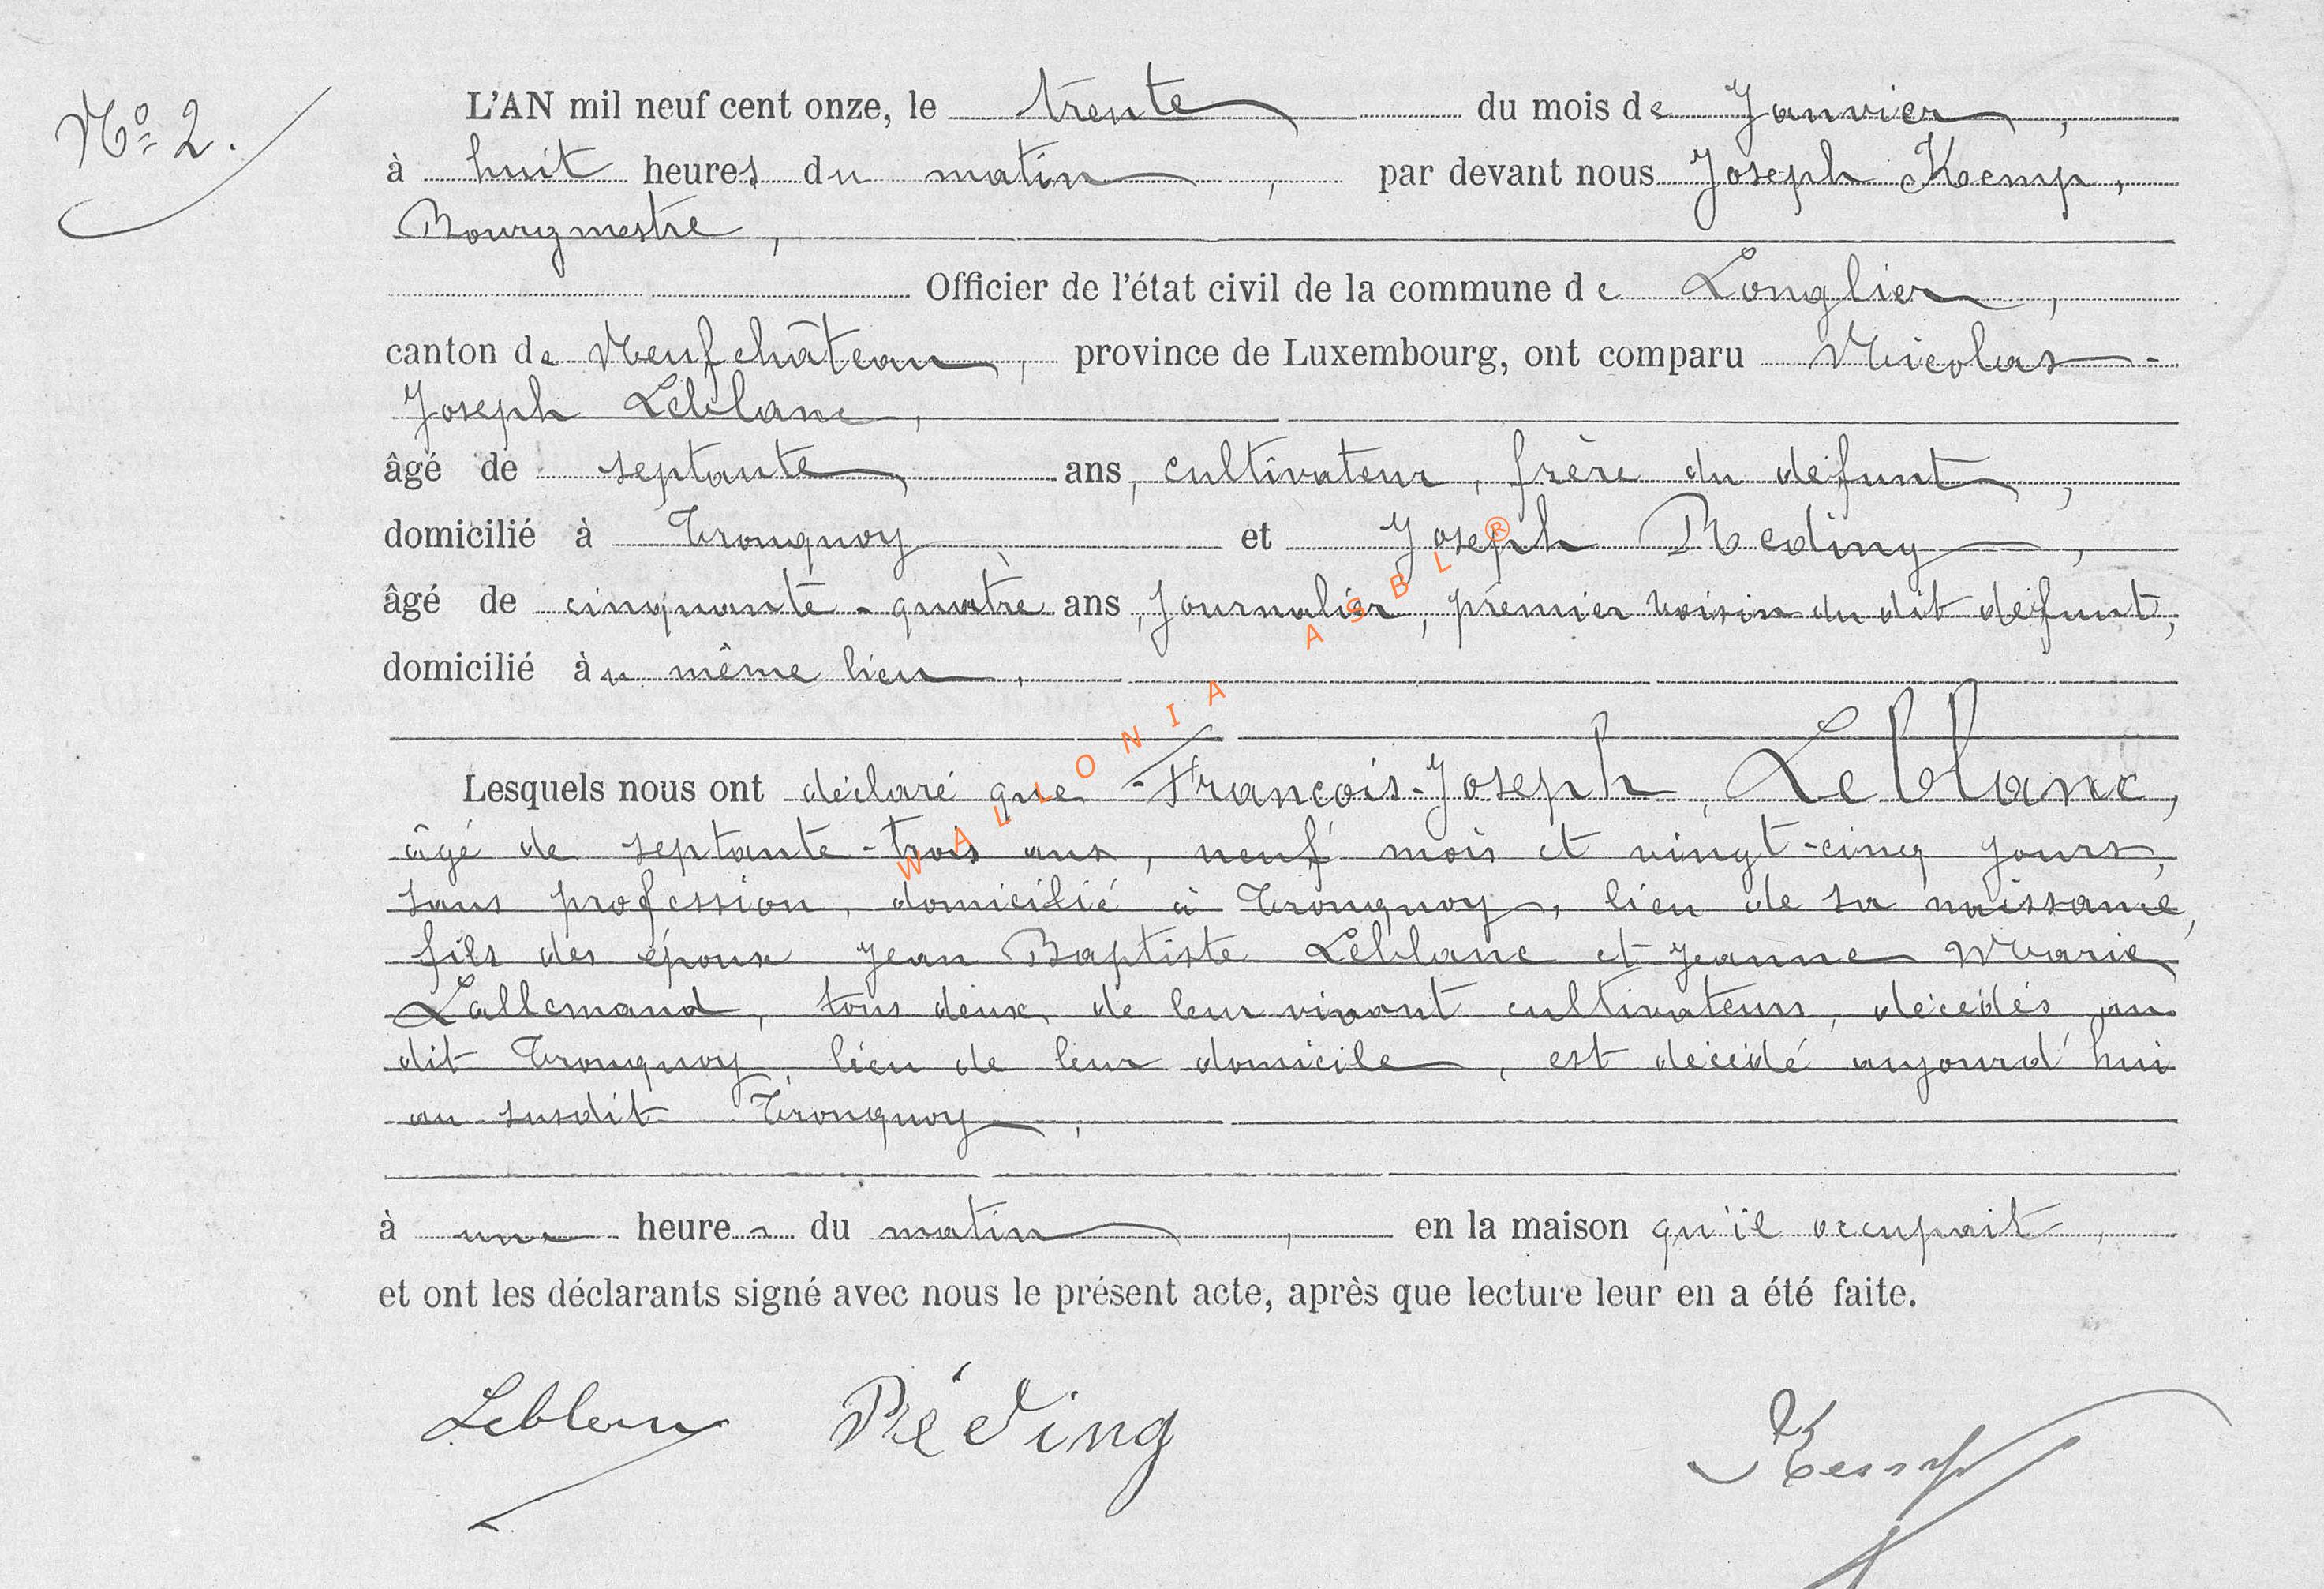 Nº 2.
L'AN mil neuf cent onze, le trente du mois de Janvier,
à huit heures du matin, par devant nous Joseph Kemp,
Bourgmestre,
Officier de l'état civil de la commune de Longlier,
canton de Neufchâteau, province de Luxembourg, ont comparu Nicolas-
Joseph Leblanc,
âgé de septante ans, cultivateur, frère du défunt,
domicilié à Tronquoy, et Joseph Reding,
âgé de cinquante-quatre ans, journalier, premier voisin du dit défunt,
domicilié au même lieu,
Lesquels nous ont déclaré que François-Joseph Leblanc,
âgé de septante-trois ans, neuf mois et vingt-cinq jours,
sans profession, domicilié à Tronquoy, lieu de sa naissance,
fils des époux Jean Baptiste Leblanc et Jeanne Marie
Lallemand, tous deux, de leur vivant cultivateurs, décédés au
dit Tronquoy, lieu de leur domicile, est décédé aujourd'hui
au susdit Tronquoy,
à une heure du matin, en la maison qu'il occupait,
et ont les déclarants signé avec nous le présent acte, après que lecture leur en a été faite.
Leblanc Réding Kemp
WALLONIA ASBL ®